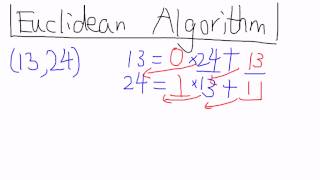 Euclidean Algorithm
(13,24) 13 = 0 × 24 + 13
24 = 1 × 13 + 11